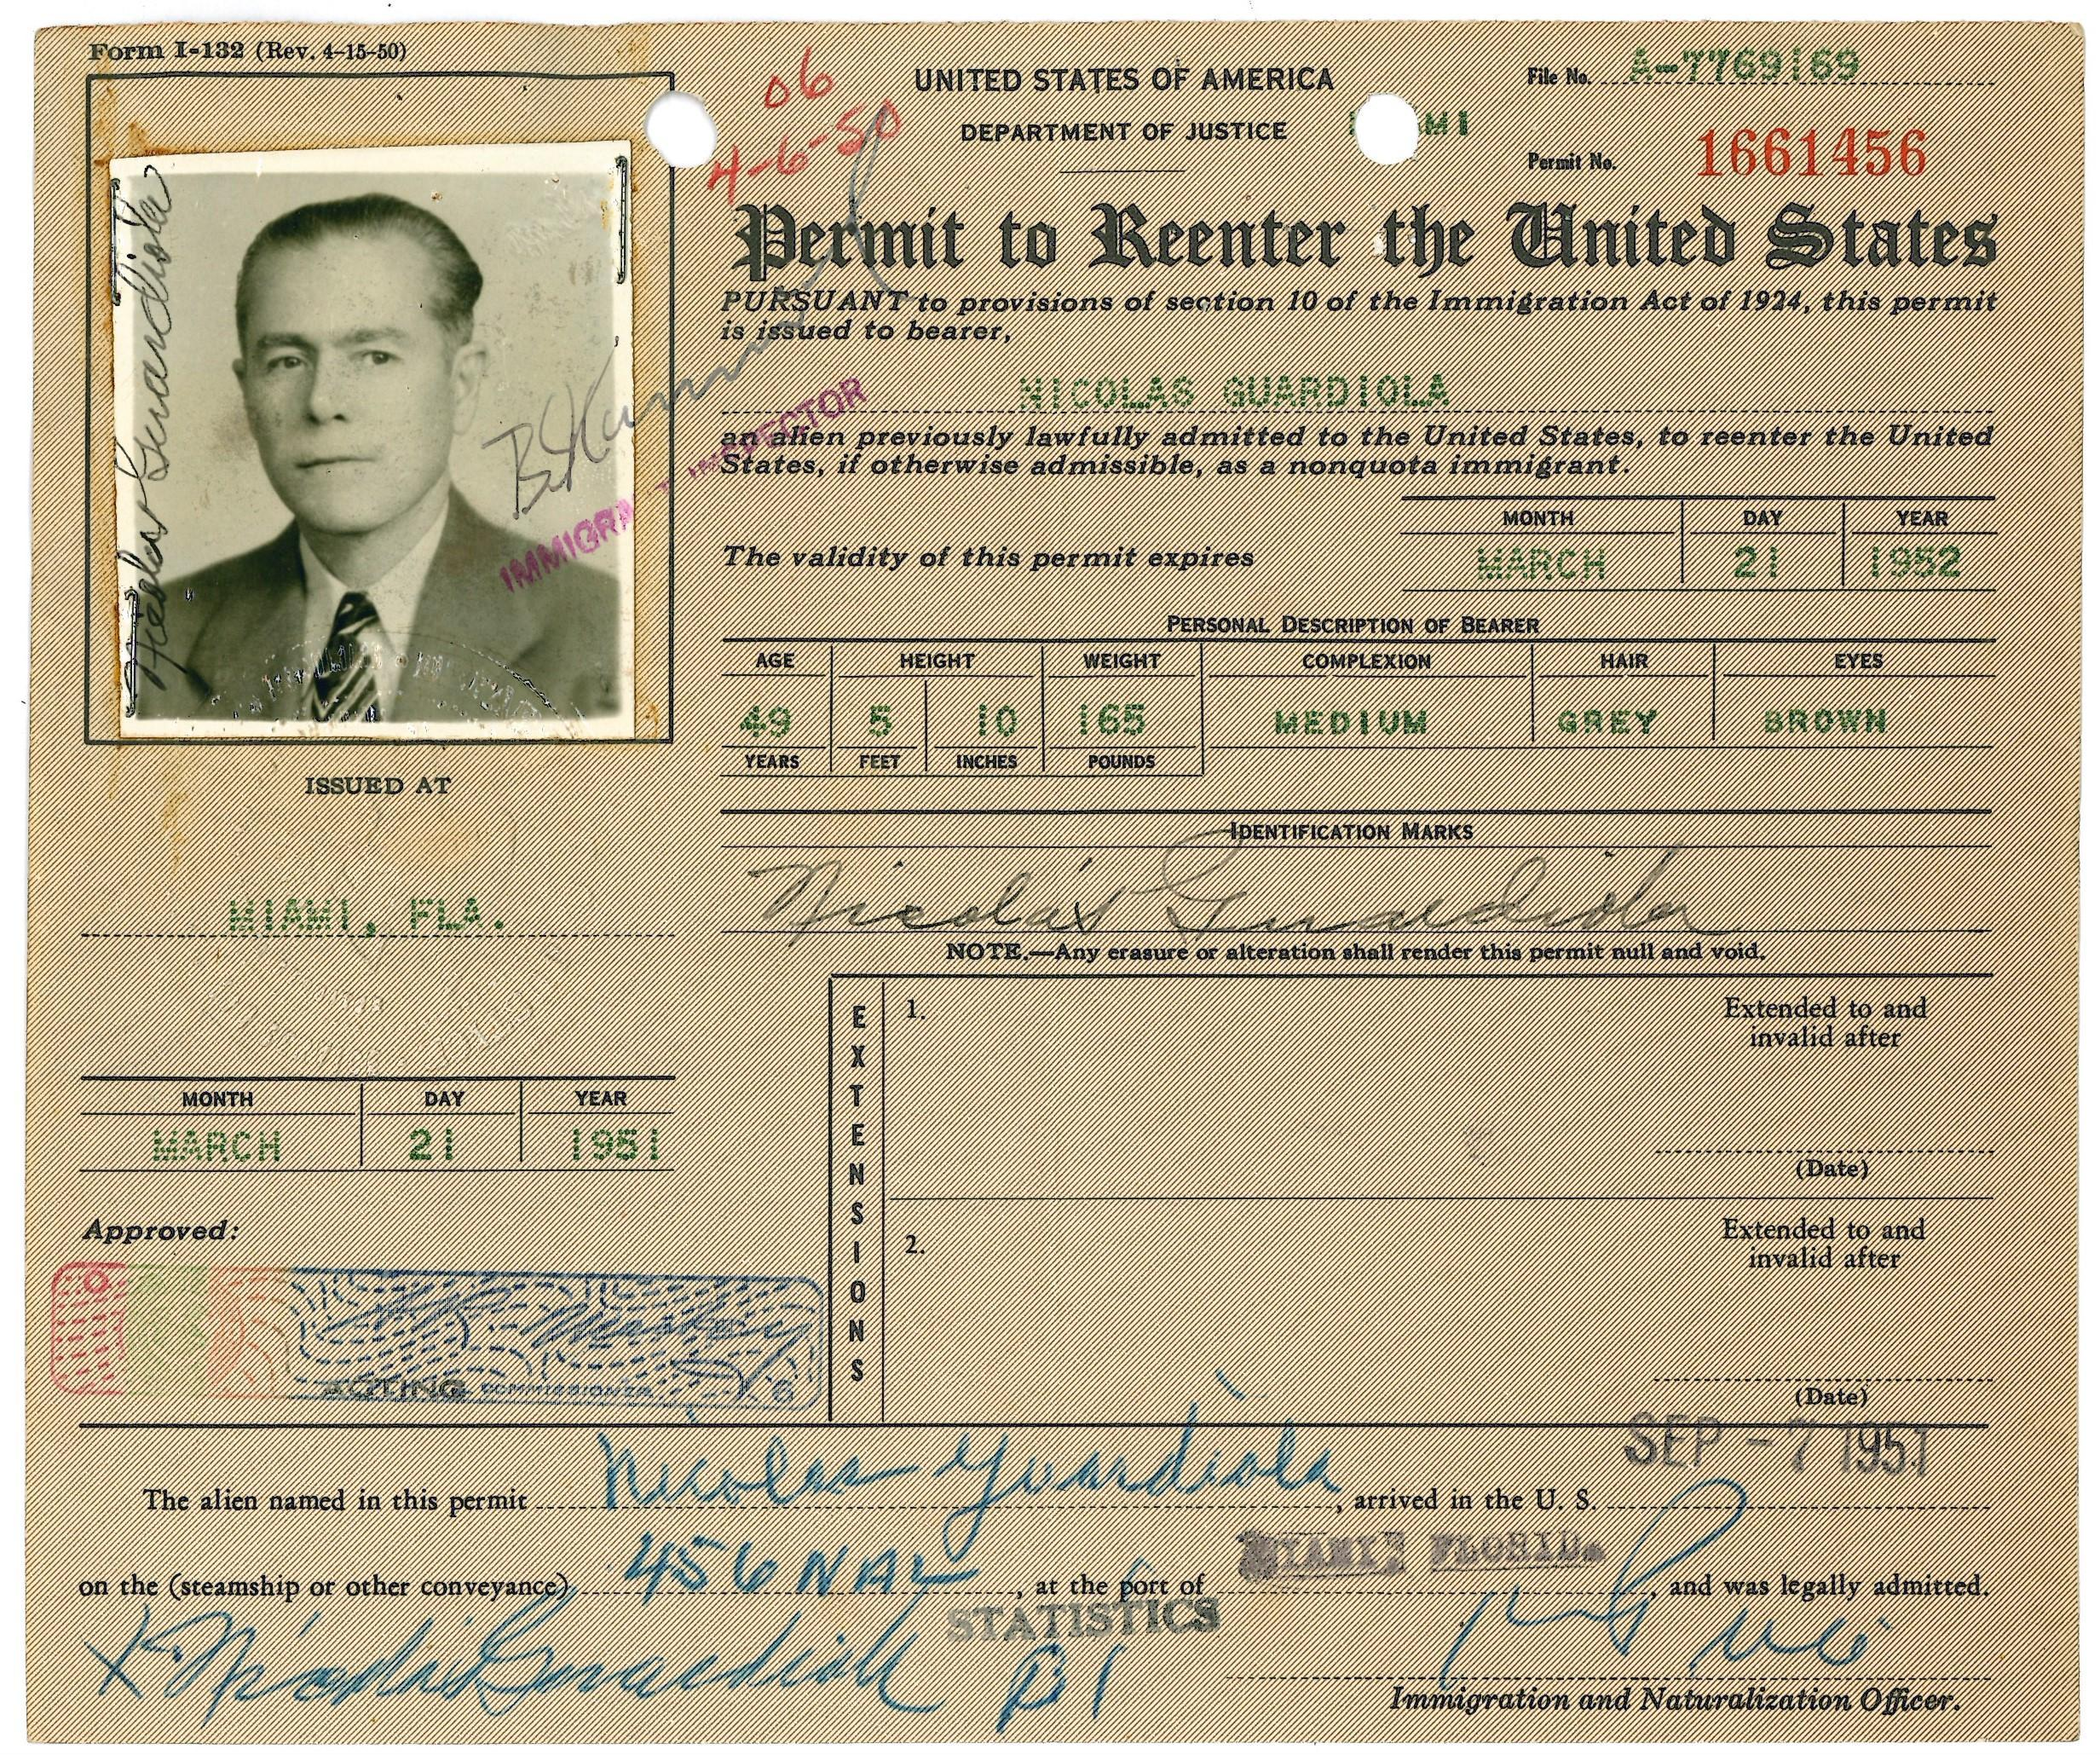 Form I-132 (Rev. 4-15-50)
06
4-6-50
UNITED STATES OF AMERICA
DEPARTMENT OF JUSTICE
File No. A-7769169
Permit No. 1661456
Permit to Reenter the United States
PURSUANT to provisions of section 10 of the Immigration Act of 1924, this permit
is issued to bearer,
NICOLAS GUARDIOLA
an alien previously lawfully admitted to the United States, to reenter the United
States, if otherwise admissible, as a nonquota immigrant.
Nicolas Guardiola
INSPECTOR
MONTH DAY YEAR
The validity of this permit expires MARCH 21 1952
PERSONAL DESCRIPTION OF BEARER
AGE HEIGHT WEIGHT COMPLEXION HAIR EYES
49 5 10 165 MEDIUM GREY BROWN
YEARS FEET INCHES POUNDS
ISSUED AT
MIAMI, FLA.
IDENTIFICATION MARKS
Nicolás Guardiola
NOTE.—Any erasure or alteration shall render this permit null and void.
MONTH DAY YEAR
MARCH 21 1951
Approved:
ACTING COMMISSIONER
EXTENSIONS
1. Extended to and
invalid after
(Date)
2. Extended to and
invalid after
(Date)
SEP - 7 1951
The alien named in this permit Nicolas Guardiola, arrived in the U. S.
on the (steamship or other conveyance) 456 NAL, at the port of MIAMI, FLORIDA, and was legally admitted.
STATISTICS
X Nicolás Guardiola
Immigration and Naturalization Officer.